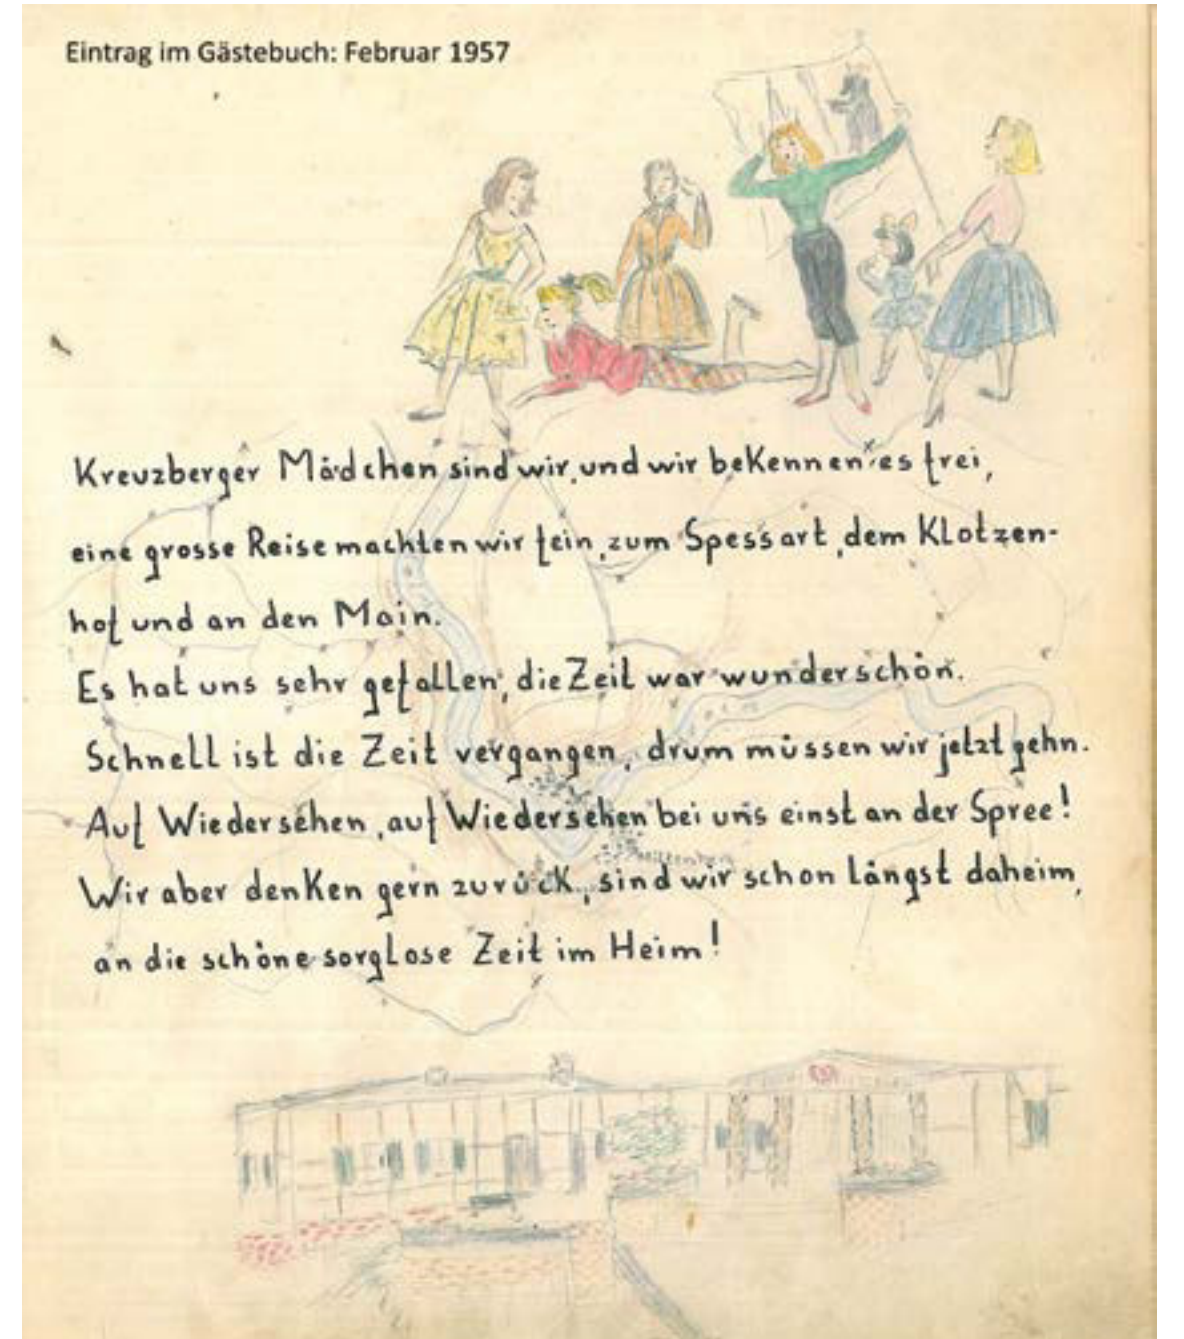 Eintrag im Gästebuch: Februar 1957
Kreuzberger Mädchen sind wir, und wir bekennen es frei,
eine grosse Reise machten wir fein, zum Spessart, dem Klotzen-
hof und an den Main.
Es hat uns sehr gefallen, die Zeit war wunderschön.
Schnell ist die Zeit vergangen, drum müssen wir jetzt gehn.
Auf Wiedersehen, auf Wiedersehen bei uns einst an der Spree!
Wir aber denken gern zurück, sind wir schon längst daheim,
an die schöne sorglose Zeit im Heim!